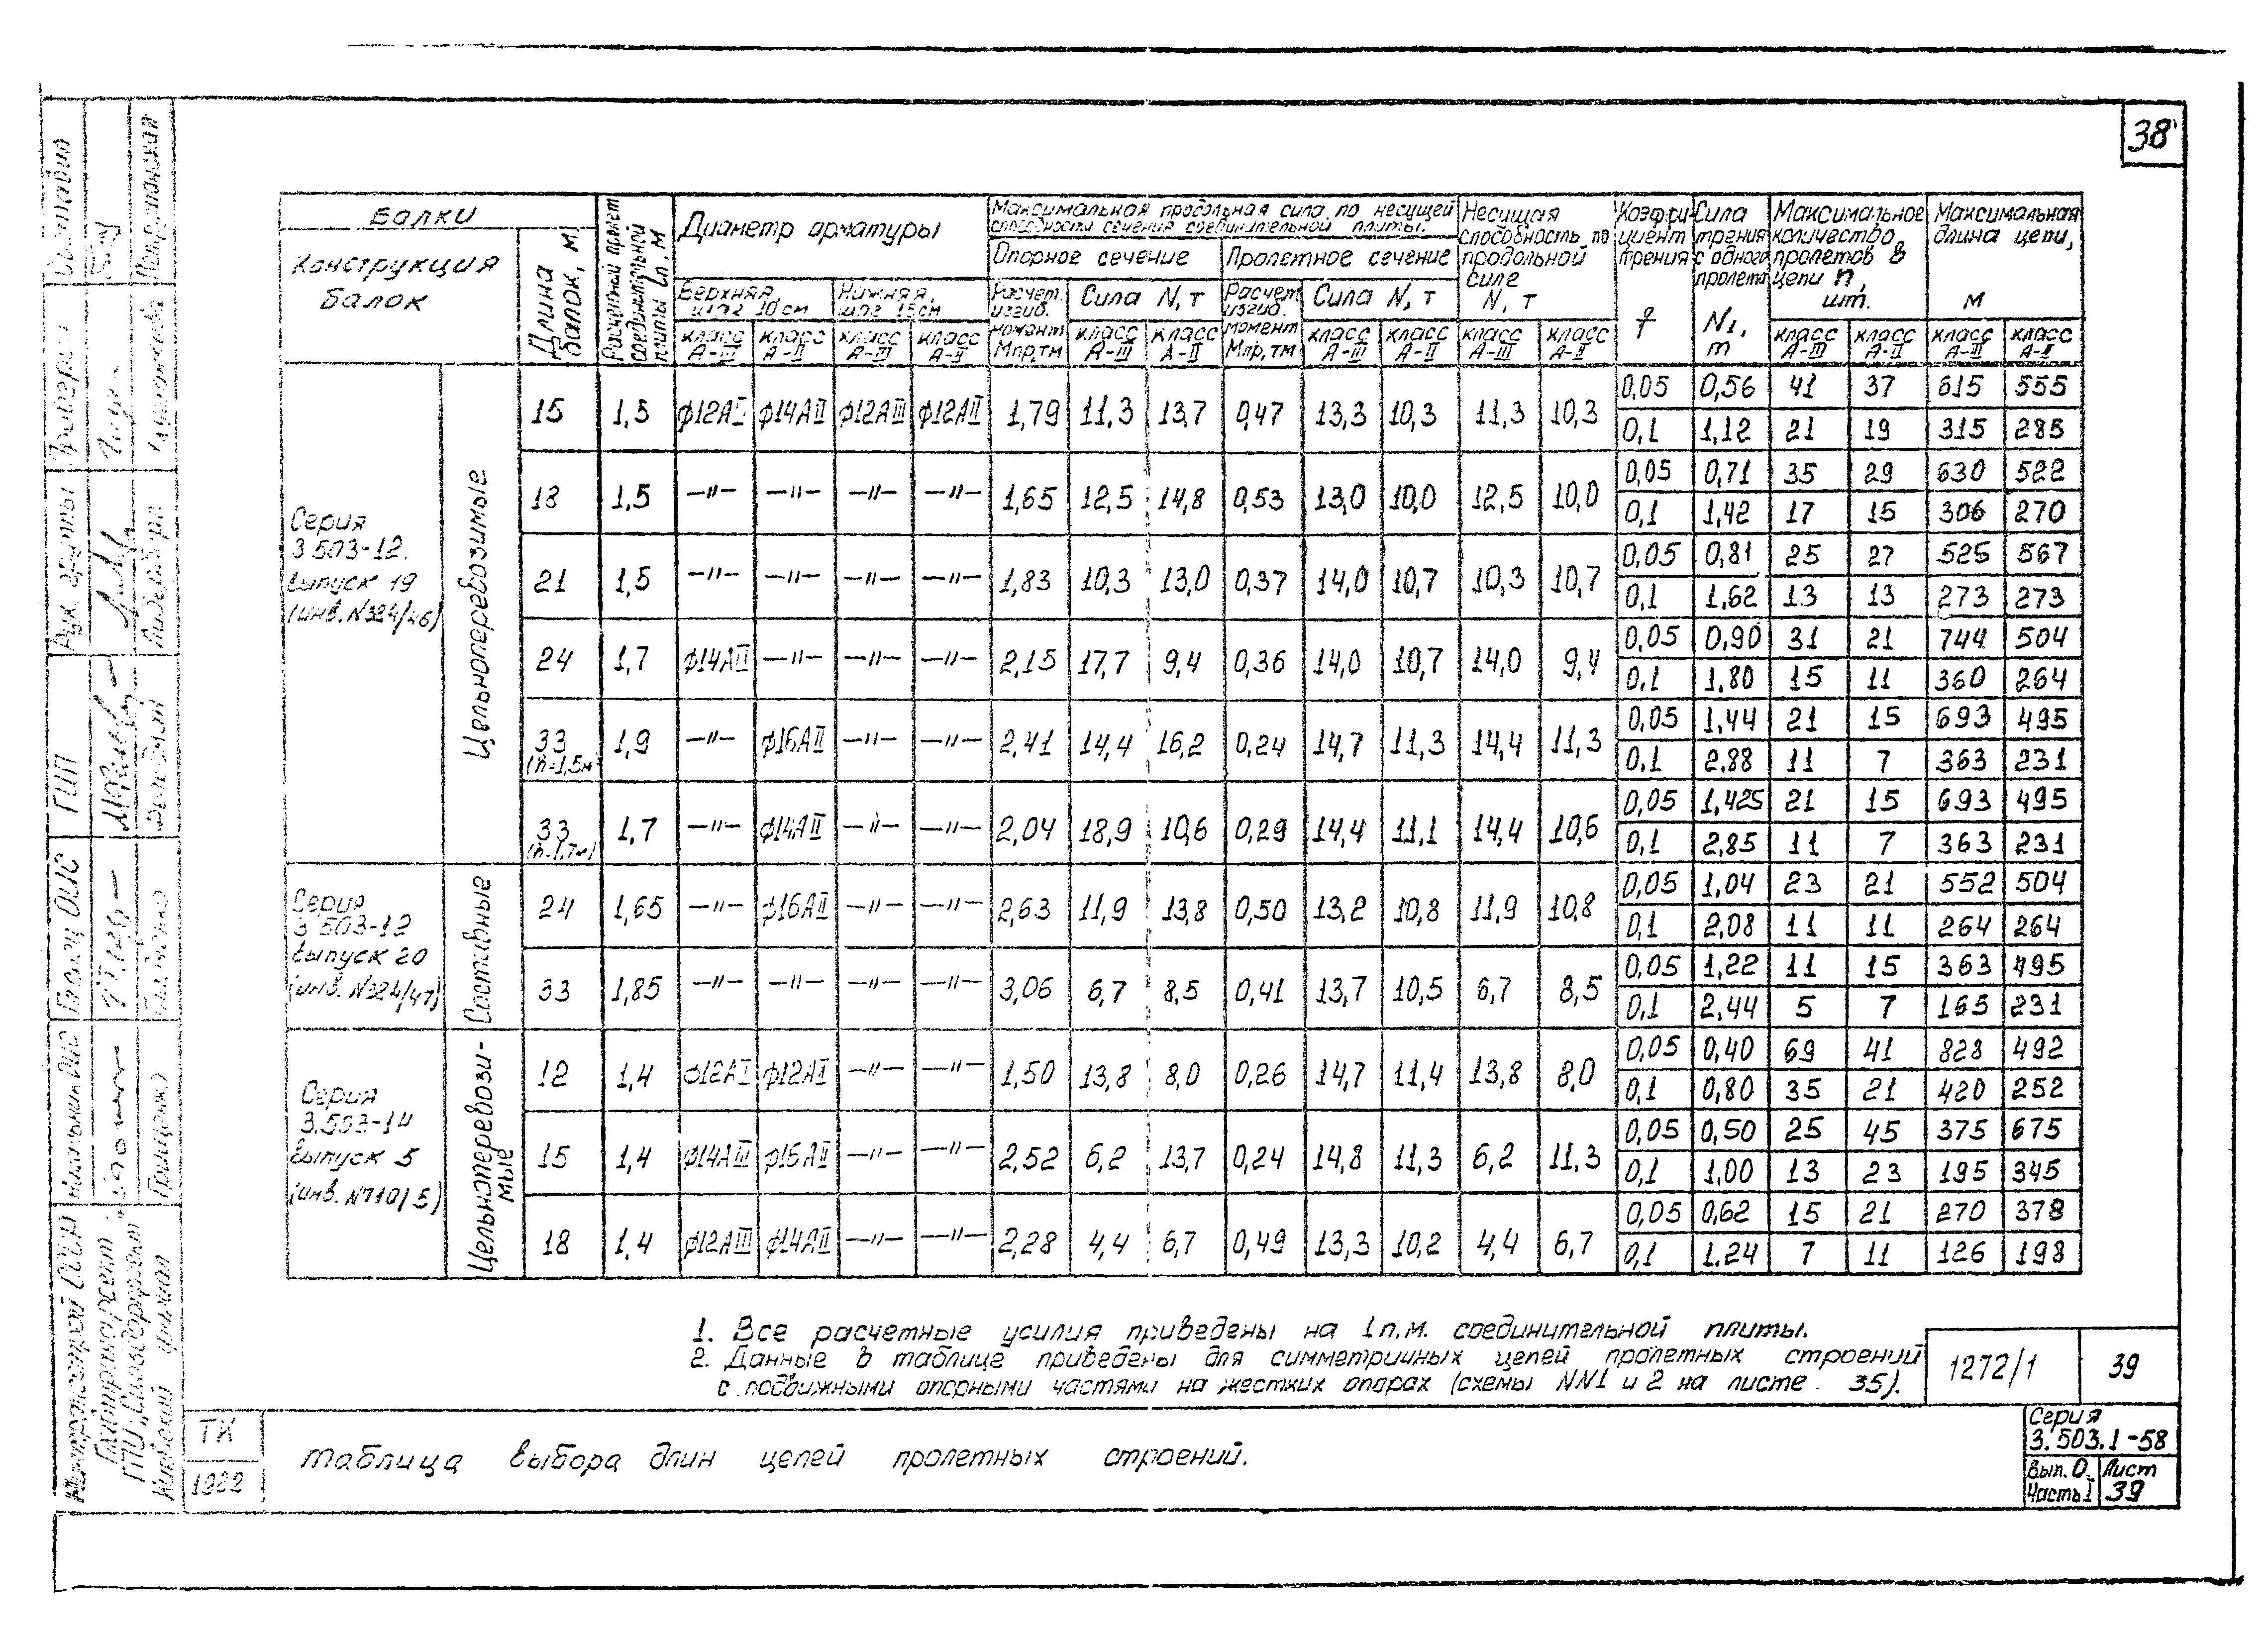 38
Балки
Конструкция балок
Длина балок, м
Расчетный пролет соединительной плиты lп, м
Диаметр арматуры
Верхняя, шаг 10 см
Нижняя, шаг 15 см
класс А-III
класс А-II
класс А-III
класс А-II
Максимальная продольная сила по несущей способности сечения соединительной плиты.
Опорное сечение
Пролетное сечение
Расчет. изгиб. момент Мпр, тм
Сила N, т
класс А-III
класс А-II
Расчет. изгиб. момент Мпр, тм
Сила N, т
класс А-III
класс А-II
Несущая способность по продольной силе N, т
класс А-III
класс А-II
Коэффициент трения f
Сила трения с одного пролета N1, т
Максимальное количество пролетов в цепи n, шт.
класс А-III
класс А-II
Максимальная длина цепи, м
класс А-III
класс А-II
Серия 3.503-12. выпуск 19 (инв. N384/46)
Цельноперевозимые
15 1,5 ϕ12АII ϕ14АII ϕ12АIII ϕ12АII 1,79 11,3 13,7 0,47 13,3 10,3 11,3 10,3
0,05 0,56 41 37 615 555
0,1 1,12 21 19 315 285
18 1,5 —"— —"— —"— —"— 1,65 12,5 14,8 0,53 13,0 10,0 12,5 10,0
0,05 0,71 35 29 630 522
0,1 1,42 17 15 306 270
21 1,5 —"— —"— —"— —"— 1,83 10,3 13,0 0,37 14,0 10,7 10,3 10,7
0,05 0,81 25 27 525 567
0,1 1,62 13 13 273 273
24 1,7 ϕ14АII —"— —"— —"— 2,15 17,7 9,4 0,36 14,0 10,7 14,0 9,4
0,05 0,90 31 21 744 504
0,1 1,80 15 11 360 264
33 (h=1,5м) 1,9 —"— ϕ16АII —"— —"— 2,41 14,4 16,2 0,24 14,7 11,3 14,4 11,3
0,05 1,44 21 15 693 495
0,1 2,88 11 7 363 231
33 (h=1,7м) 1,7 —"— ϕ14АII —"— —"— 2,04 18,9 10,6 0,29 14,4 11,1 14,4 10,6
0,05 1,425 21 15 693 495
0,1 2,85 11 7 363 231
Серия 3.503-12 выпуск 20 (инв. N384/47)
Составные
24 1,65 —"— ϕ16АII —"— —"— 2,63 11,9 13,8 0,50 13,2 10,8 11,9 10,8
0,05 1,04 23 21 552 504
0,1 2,08 11 11 264 264
33 1,85 —"— —"— —"— —"— 3,06 6,7 8,5 0,41 13,7 10,5 6,7 8,5
0,05 1,22 11 15 363 495
0,1 2,44 5 7 165 231
Серия 3.503-14 выпуск 5 (инв. N710/5)
Цельноперевозимые
12 1,4 ϕ12АI ϕ12АI —"— —"— 1,50 13,8 8,0 0,26 14,7 11,4 13,8 8,0
0,05 0,40 69 41 828 492
0,1 0,80 35 21 420 252
15 1,4 ϕ14АIII ϕ16АII —"— —"— 2,52 6,2 13,7 0,24 14,8 11,3 6,2 11,3
0,05 0,50 25 45 375 675
0,1 1,00 13 23 195 345
18 1,4 ϕ12АIII ϕ14АII —"— —"— 2,28 4,4 6,7 0,49 13,3 10,2 4,4 6,7
0,05 0,62 15 21 270 378
0,1 1.24 7 11 126 198
1. Все расчетные усилия приведены на 1 п.м. соединительной плиты.
2. Данные в таблице приведены для симметричных цепей пролетных строений
с подвижными опорными частями на жестких опорах (схемы NN1 и 2 на листе 35).
1272/1 39
ТК
1982
Таблица выбора длин цепей пролетных строений.
Серия
3.503.1-58
Вып. 0 Часть 1
Лист 39
ГИП
Рук. группы
Проверил
Составил
Киевский филиал